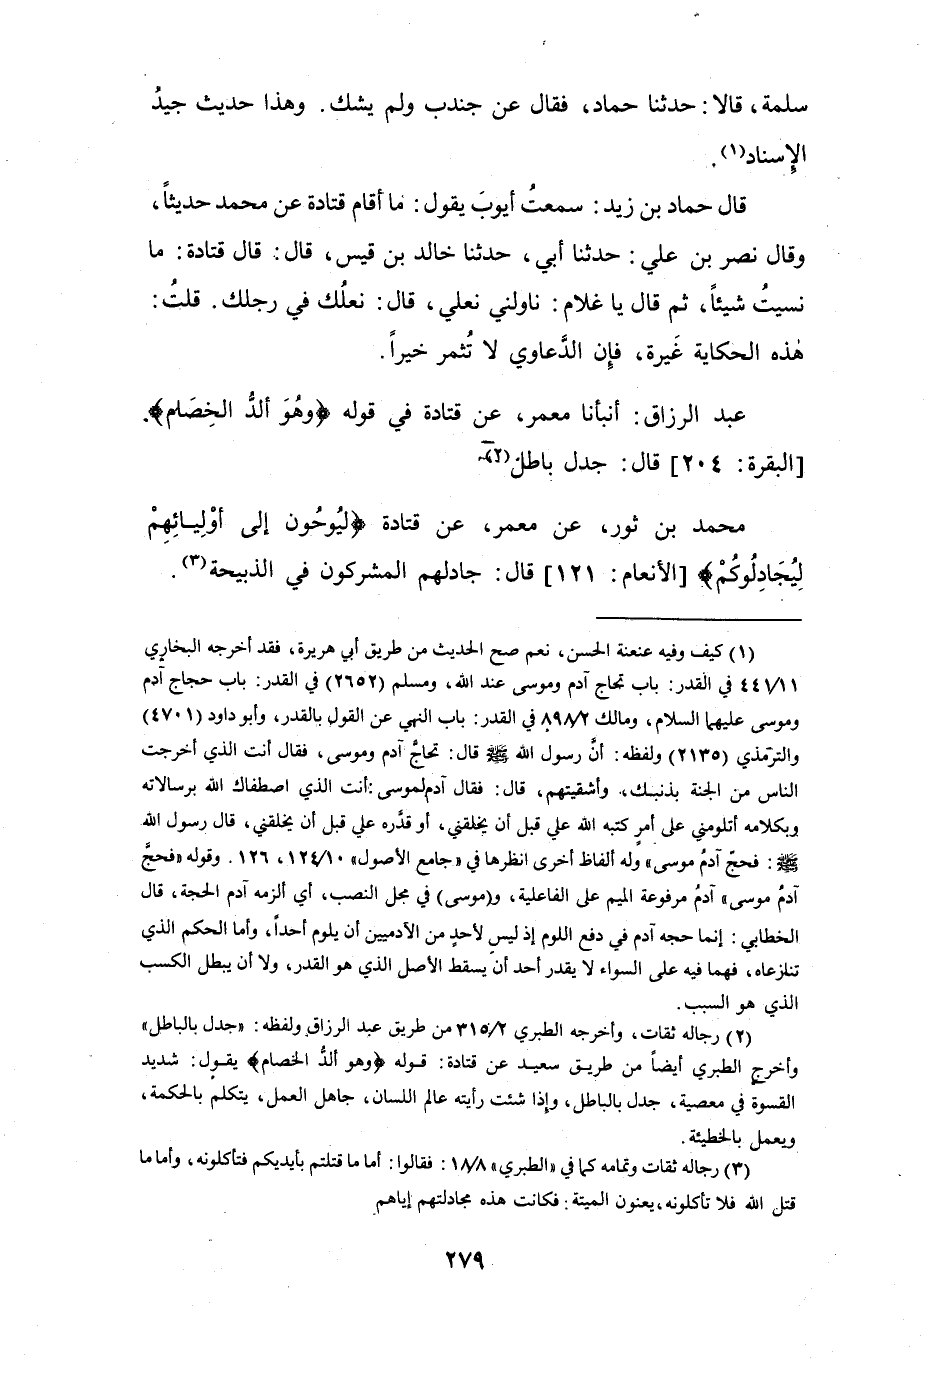 سلمة، قالا: حدثنا حماد، فقال عن جندب ولم يشك. وهذا حديث جيدُ
الإِسناد(١).
قال حماد بن زيد: سمعتُ أيوبَ يقول: ما أقام قتادة عن محمد حديثاً،
وقال نصر بن علي: حدثنا أبي، حدثنا خالد بن قيس، قال: قال قتادة: ما
نسيتُ شيئاً، ثم قال يا غلام: ناولني نعلي، قال: نعلُك في رجلك. قلتُ:
هٰذه الحكاية غَيرة، فإن الدَّعاوي لا تُثمر خيراً.
عبد الرزاق: أنبأنا معمر، عن قتادة في قوله ﴿وهُوَ ألدُّ الخِصَام﴾.
[البقرة: ٢٠٤] قال: جدل باطل(٢).
محمد بن ثور، عن معمر، عن قتادة ﴿ليُوحُون إلى أوْلِيـائِهِمْ
لِيُجَادِلُوكُمْ﴾ [الأنعام: ١٢١] قال: جادلهم المشركون في الذبيحة(٣).
(١) كيف وفيه عنعنة الحسن، نعم صح الحديث من طريق أبي هريرة، فقد أخرجه البخاري
٤٤١/١١ في القدر: باب تحاج آدم وموسى عند الله، ومسلم (٢٦٥٢) في القدر: باب حجاج آدم
وموسى عليهما السلام، ومالك ٨٩٨/٢ في القدر: باب النهي عن القول بالقدر، وأبو داود (٤٧٠١)
والترمذي (٢١٣٥) ولفظه: أنَّ رسول الله ﷺ قال: تحاجَّ آدم وموسى، فقال أنت الذي أخرجت
الناس من الجنة بذنبـك، وأشقيتهم، قال: فقال آدم لموسى: أنت الذي اصطفاك الله برسالاته
وبكلامه أتلومني على أمرٍ كتبه الله علي قبل أن يخلقني، أو قدَّره علي قبل أن يخلقني، قال رسول الله
ﷺ: فحجّ آدمُ موسى» وله ألفاظ أخرى انظرها في «جامع الأصول» ١٢٤/١٠، ١٢٦. وقوله «فحجَّ
آدمُ موسى» آدمُ مرفوعة الميم على الفاعلية، و(موسى) في محل النصب، أي ألزمه آدم الحجة، قال
الخطابي: إنما حجه آدم في دفع اللوم إذ ليس لأحدٍ من الآدميين أن يلوم أحداً، وأما الحكم الذي
تنازعاه، فهما فيه على السواء لا يقدر أحد أن يسقط الأصل الذي هو القدر، ولا أن يبطل الكسب
الذي هو السبب.
(٢) رجاله ثقات، وأخرجه الطبري ٣١٥/٢ من طريق عبد الرزاق ولفظه: «جدل بالباطل»
وأخرج الطبري أيضاً من طريـق سعيـد عن قتادة: قـوله ﴿وهو ألدُّ الخصام﴾ يقـول: شديد
القسوة في معصية، جدل بالباطل، وإذا شئت رأيته عالم اللسان، جاهل العمل، يتكلم بالحكمة،
ويعمل بالخطيئة.
(٣) رجاله ثقات وتمامه كما في «الطبري» ١٨/٨: فقالوا: أما ما قتلتم بأيديكم فتأكلونه، وأما ما
قتل الله فلا تأكلونه، يعنون الميتة: فكانت هذه مجادلتهم إياهم
٢٧٩